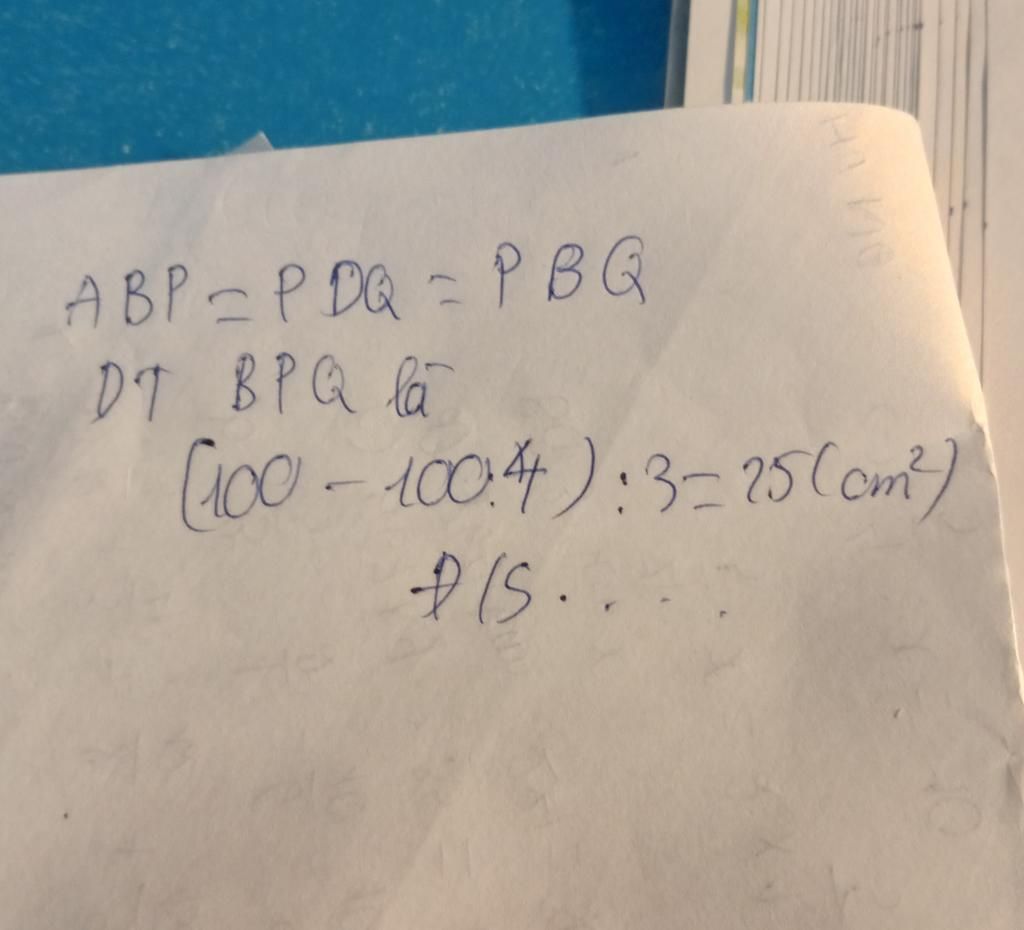 ABP = PDQ = PBQ
DT BPQ là
(100 - 100:4) : 3 = 25 (cm²)
Đ/S . . . . .